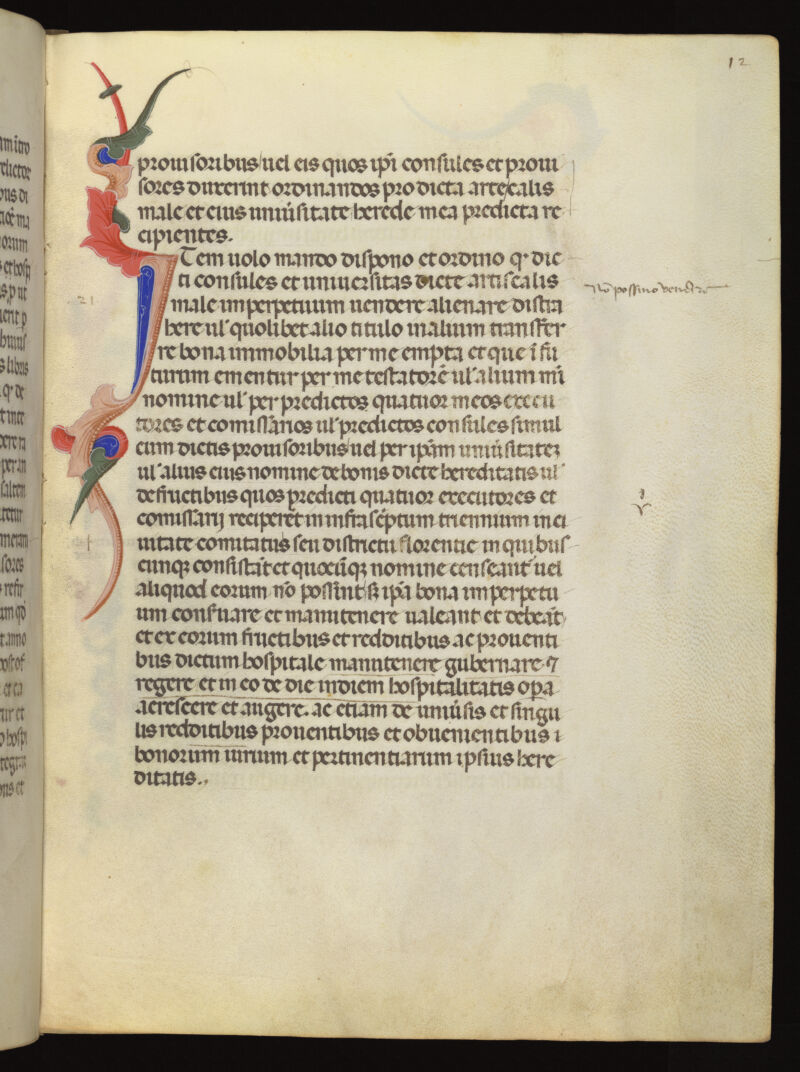 12
prouisoribus uel eis quos ip̄i consules et proui
sores duxerint ordinandos pro dicta arte calis
male et eius uniūsitate herede mea predicta re
cipientes.
Item uolo mando dispono et ordino q̄ dic
ti consules et uniuersitas dicte artis calis
male imperpetuum uendere alienare distra
here ul' quolibet alio titulo in alium transfer
re bona immobilia per me empta et que ī fu
turum ementur per me testatorē ul' alium mī
nomine ul' per predictos quatuor meos execu
tores et comissarios ul' predictos consules simul
cum dictis prouisoribus uel per ip̄am uniūsitatez
ul' alius eius nomine de bonis dicte hereditatis ul'
de fructibus quos predicti quatuor executores et
comissarij reciperēt in infrasēptum triennium in ci
uitate comitatus seu districtu florentie in quibus
cunqꝫ consistāt et quocūqꝫ nomine censeant' uel
aliquod eorum nō possint sꝫ ip̄a bona imperpetu
um conseruare et manutenere ualeant et debeāt
et ex eorum fructibus et redditibus ac prouenti
bus dictum hospitale manutenere gubernare ⁊
regere et in eo de die indiem hospitalitatis opa
acrescere et augere. ac etiam de uniūsis et singu
lis redditibus prouentibus et obuenientibus i
bonorum iurium et pertinentiarum ipsius here
ditatis..
21
nō possino vendere